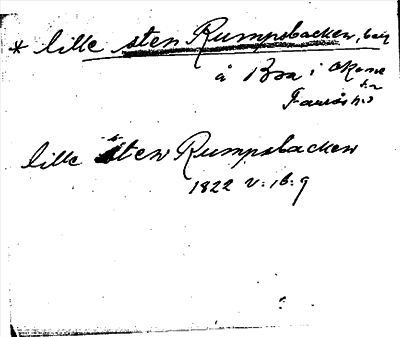 * lille sten Rumpsbacken, bac
å Boa i Skone
s:n
Faurås h:d
lille sten Rumpsbacken
1822 v: 16: 9